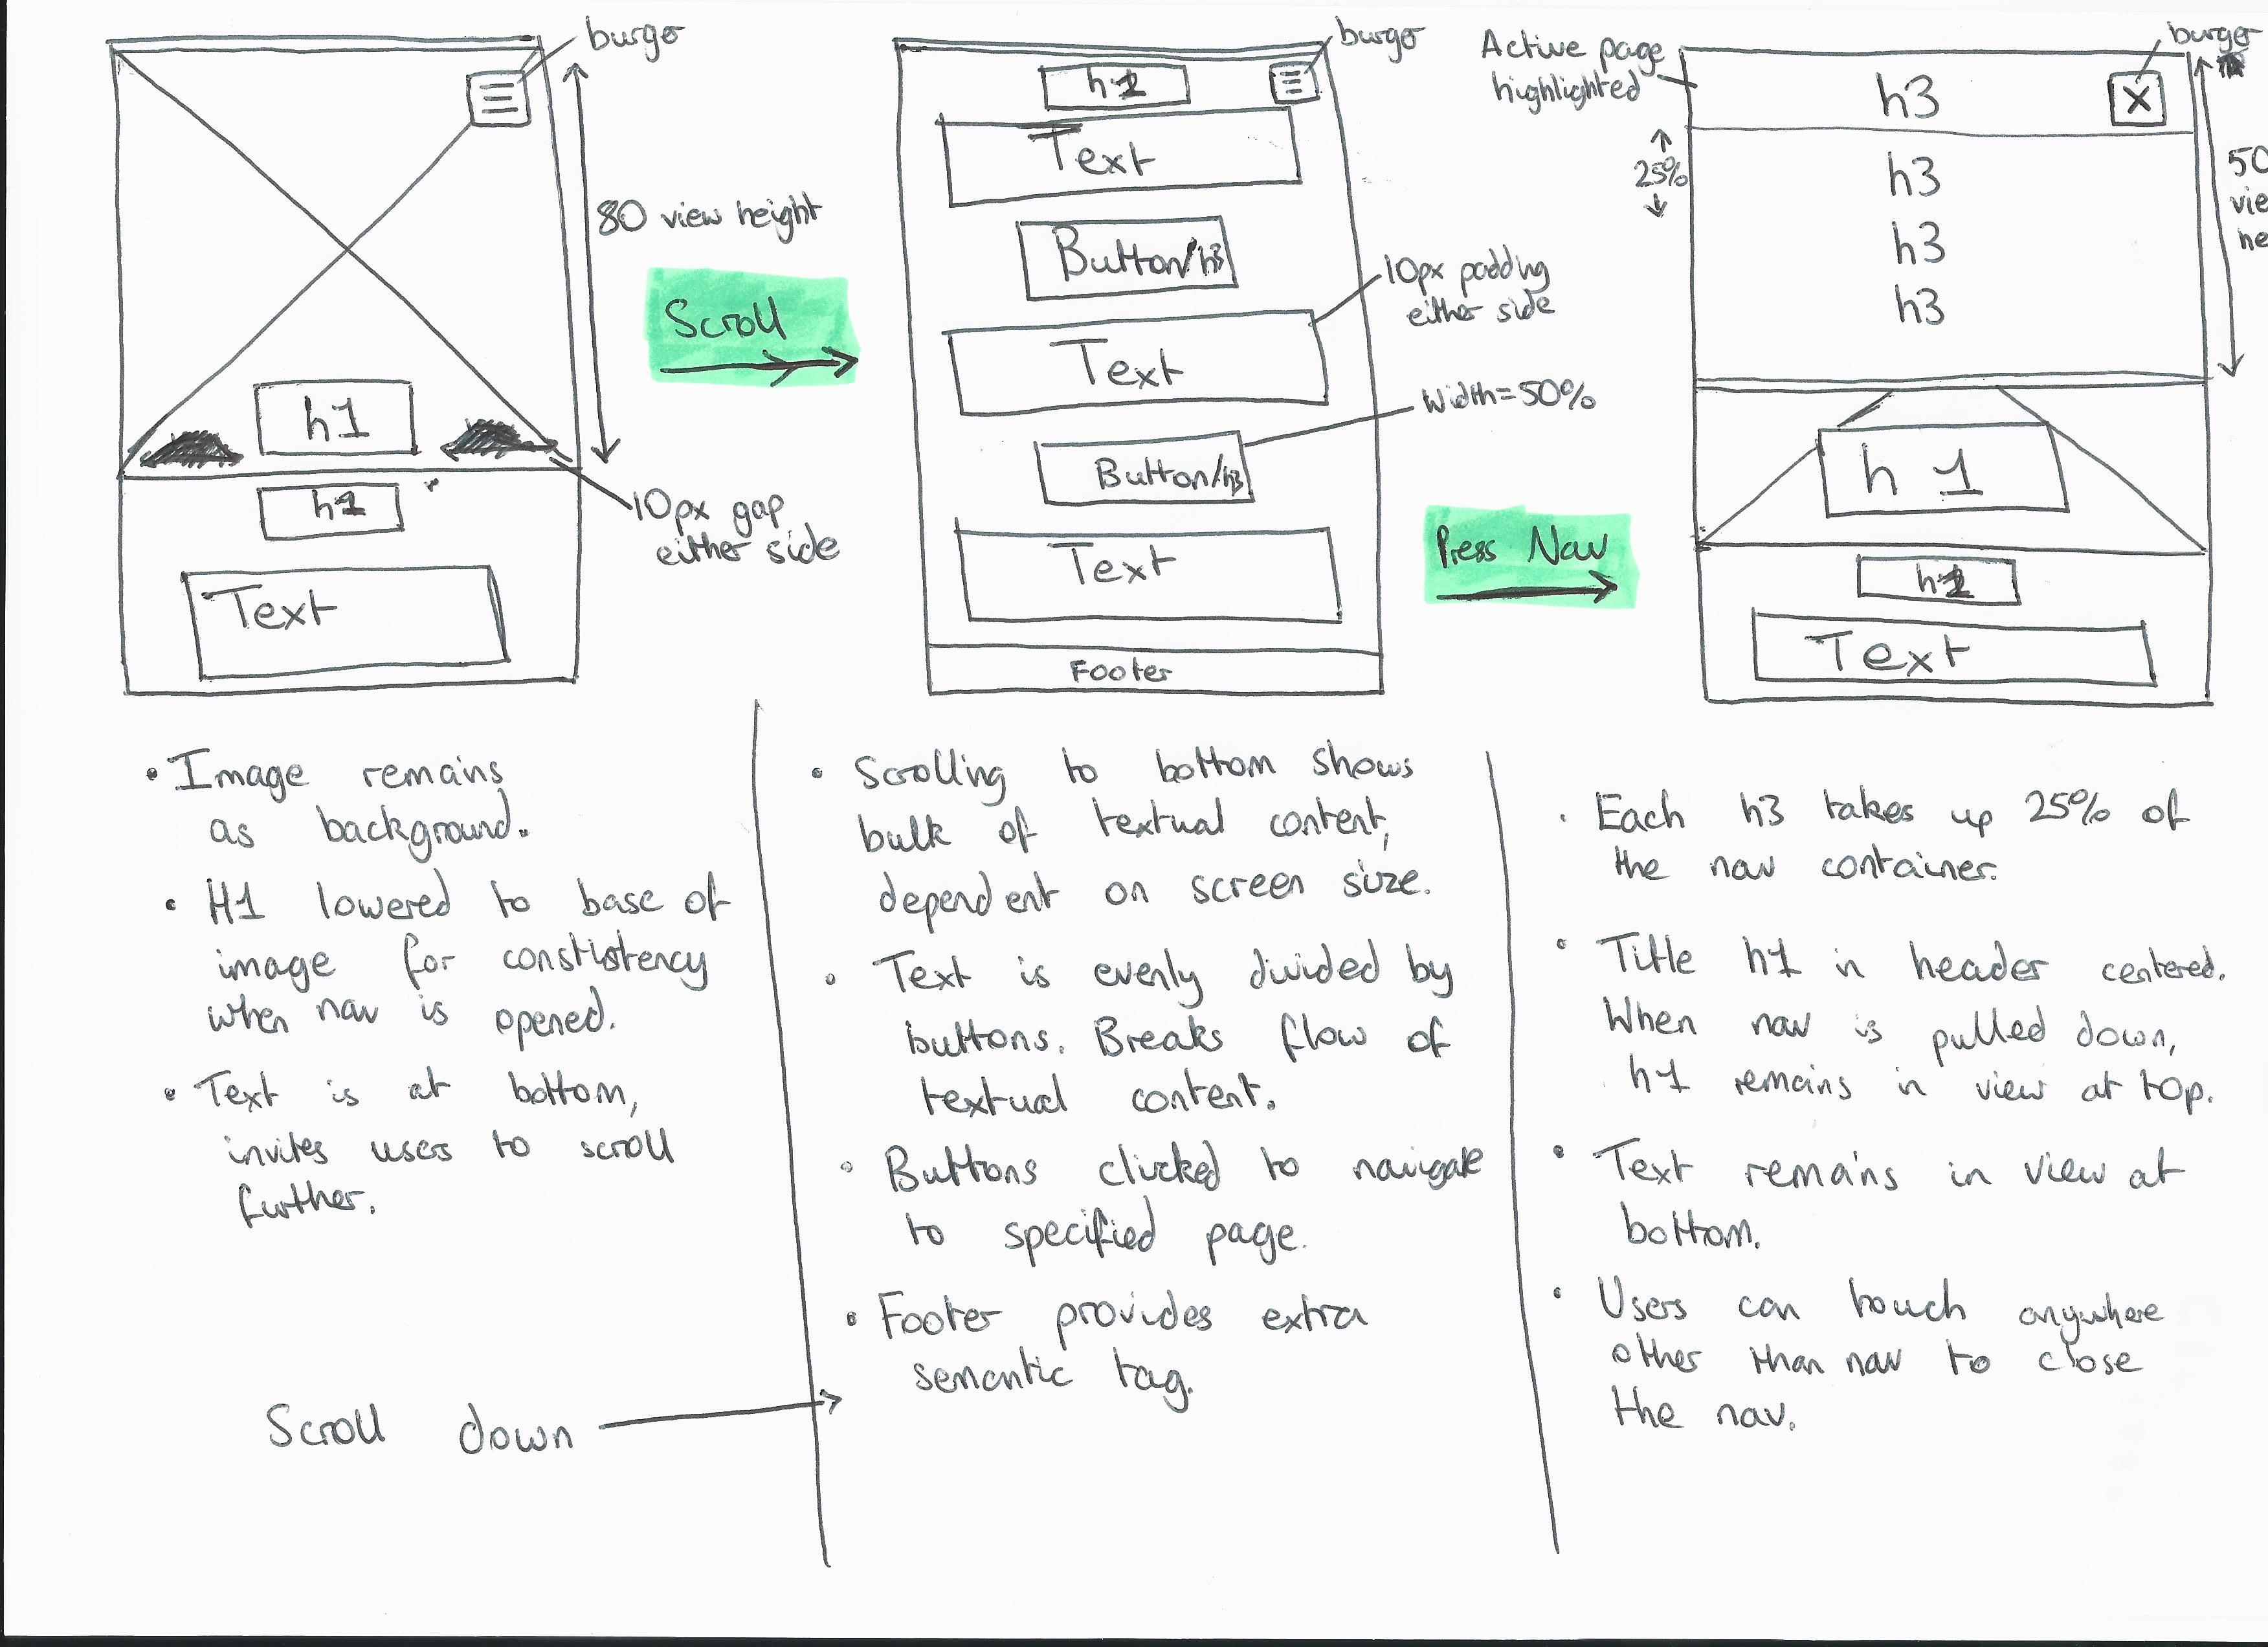 burger
h1
80 view height
10px gap
either side
Text
Scroll
burger
Text
Button/h3
Text
10px padding
either side
Width=50%
Button/h3
Text
Footer
Press Nav
Active page
highlighted
burger
h3
X
25%
h3
h3
h3
50
vie
he
h 1
Text
• Image remains
as background.
• H1 lowered to base of
image for constistency
when nav is opened.
• Text is at bottom,
invites users to scroll
further.
Scroll down
• Scrolling to bottom shows
bulk of textual content,
dependent on screen size.
• Text is evenly divided by
buttons. Breaks flow of
textual content.
• Buttons clicked to navigate
to specified page.
• Footer provides extra
semantic tag.
• Each h3 takes up 25% of
the nav container.
• Title h1 in header centered.
When nav is pulled down,
h1 remains in view at top.
• Text remains in view at
bottom.
• Users can touch anywhere
other than nav to close
the nav.